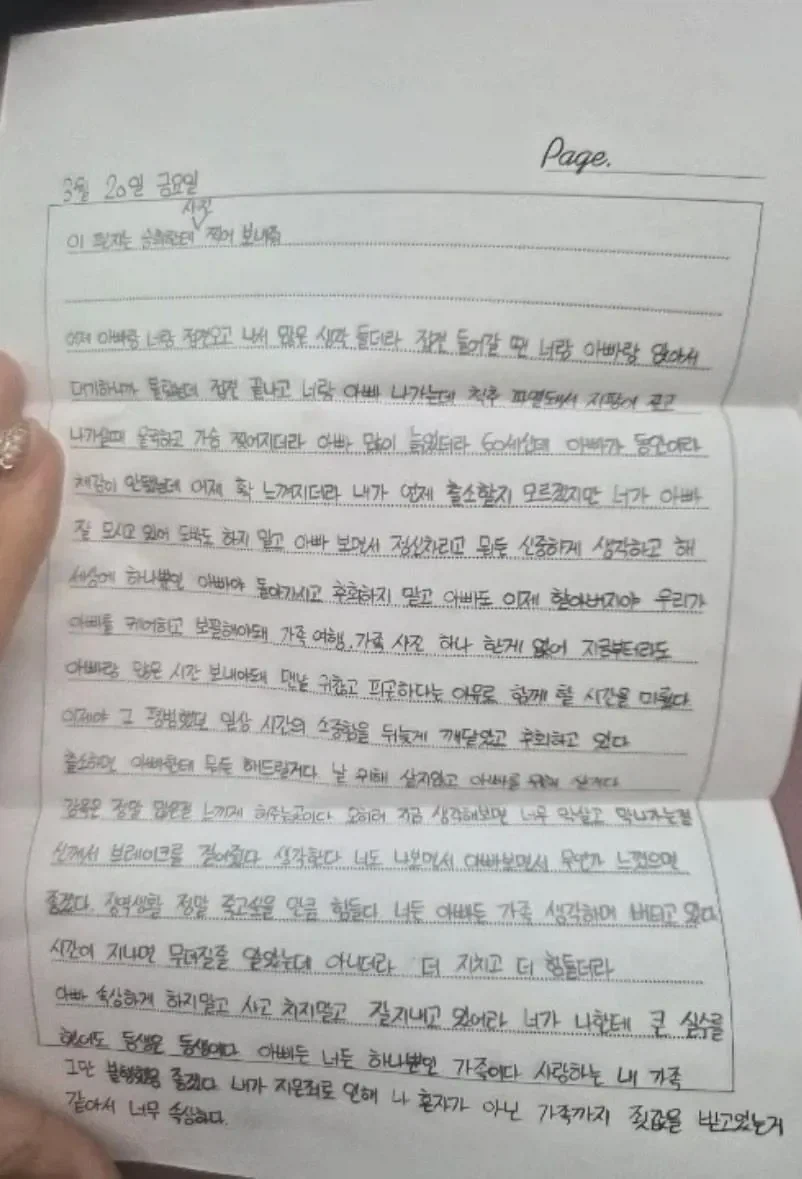 Page.
3월 20일 금요일
사진
이 편지는 승희한테 찍어 보내줘
어제 아빠랑 너랑 접견오고 나서 많은 생각 들더라 접견 들어갈 땐 너랑 아빠랑 앉아서
대기하니까 몰랐는데 접견 끝나고 너랑 아빠 나가는데 척추 파열돼서 지팡이 짚고
나가실때 울컥하고 가슴 찢어지더라 아빠 많이 늙었더라 60세신데 아빠가 동안이라
체감이 안됐는데 어제 확 느껴지더라 내가 언제 출소할지 모르겠지만 너가 아빠
잘 모시고 있어 도박도 하지 말고 아빠 보면서 정신차리고 뭐든 신중하게 생각하고 해
세상에 하나뿐인 아빠야 돌아가시고 후회하지 말고 아빠도 이제 할아버지야 우리가
아빠를 케어하고 보필해야돼 가족 여행, 가족 사진 하나 한게 없어 지금부터라도
아빠랑 많은 시간 보내야돼 맨날 귀찮고 피곤하다는 이유로 함께 할 시간을 미뤘다
이제야 그 평범했던 일상 시간의 소중함을 뒤늦게 깨달았고 후회하고 있다
출소하면 아빠한테 뭐든 해드릴거다 날 위해 살지않고 아빠를 위해 산다
감옥은 정말 많은걸 느끼게 해주는곳이다 오히려 지금 생각해보면 너무 막살고 막나가는걸
신께서 브레이크를 걸어줬다 생각한다 너도 나보면서 아빠보면서 무언가 느꼈으면
좋겠다. 징역생활 정말 죽고싶을 만큼 힘들다 너든 아빠든 가족 생각하며 버티고 있다
시간이 지나면 무뎌질줄 알았는데 아니더라 더 지치고 더 힘들더라
아빠 속상하게 하지말고 사고 치지말고 잘지내고 있어라 너가 나한테 큰 실수를
했어도 동생은 동생이다 아빠든 너든 하나뿐인 가족이다 사랑하는 내 가족
그만 불행했음 좋겠다 내가 지은죄로 인해 나 혼자가 아닌 가족까지 죗값을 받고있는거
같아서 너무 속상하다.